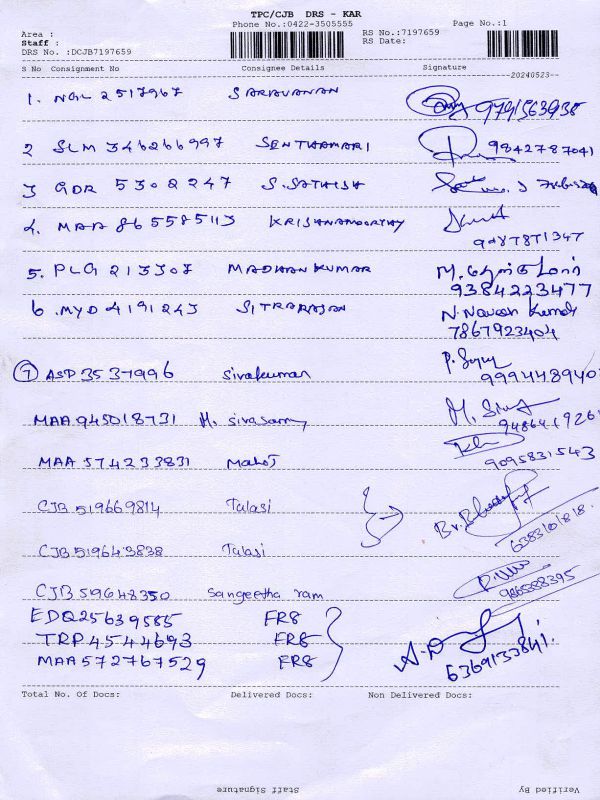 TPC/CJB DRS - KAR
Phone No.:0422-3505555 Page No.:1
Area :
Staff :
DRS No. :DCJB7197659
RS No.:7197659
RS Date:
S No Consignment No Consignee Details Signature
20240523
1. NGL 2517967 SARAVANAN 9791563935
2 SLM 346266997 SENTHAMARI 9842787041
3 GDR 5302247 S.SATHISH
4. MAA 865585113 KRISHNAMOORTHY
9487871347
5. PLG 213307 MADHANKUMAR
9384223477
6 MYD 4191243 SITRARASAN N. Naveen Kumar
7867923404
7 ASD 3537996 Sivakumar
999448940
MAA 945018731 M. Sivasamy M. Siva
MAA 574233831 Mahoj
9095831543
CJB 519669814 Tulasi
6383101818
CJB 519643838 Tulasi
CJB 59648350 Sangeetha ram
EDQ25639585 FR8
TRP4544693 FR8
MAA572767529 FR8
6369133841
Total No. Of Docs: Delivered Docs: Non Delivered Docs:
Staff Signature Verified By